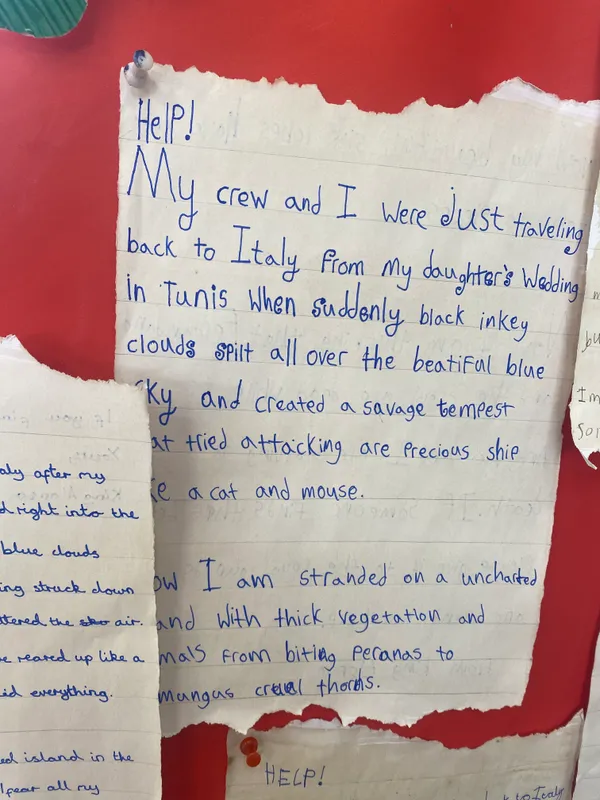 HelP!
My crew and I were just traveling
back to Italy from my daughter's Wedding
in Tunis when suddenly black inkey
clouds spilt all over the beatiful blue
sky and created a savage tempest
at tried attacking are precious ship
ke a cat and mouse.
ow I am stranded on a uncharted
and with thick vegetation and
mals from biting Peranas to
mungas cruel thorns.
aly after my
d right into the
blue clouds
ing struck down
ttered the air.
e reared up like a
id everything.
ed island in the
I fear all my
HELP!
k to Italy
bu
Im
sor